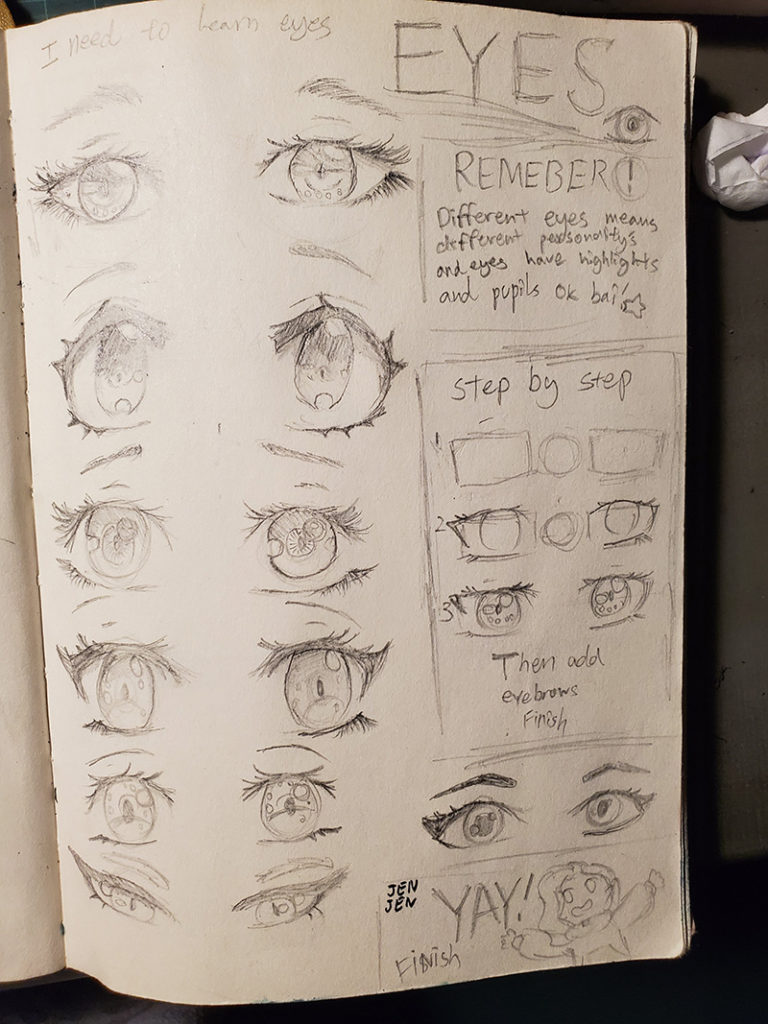 I need to learn eyes
EYES
REMEBER!
Different eyes means
different personality's
and eyes have highlights
and pupils ok bai
step by step
1
2
3
Then add
eyebrows
Finish
JEN
JEN
YAY!
Finish